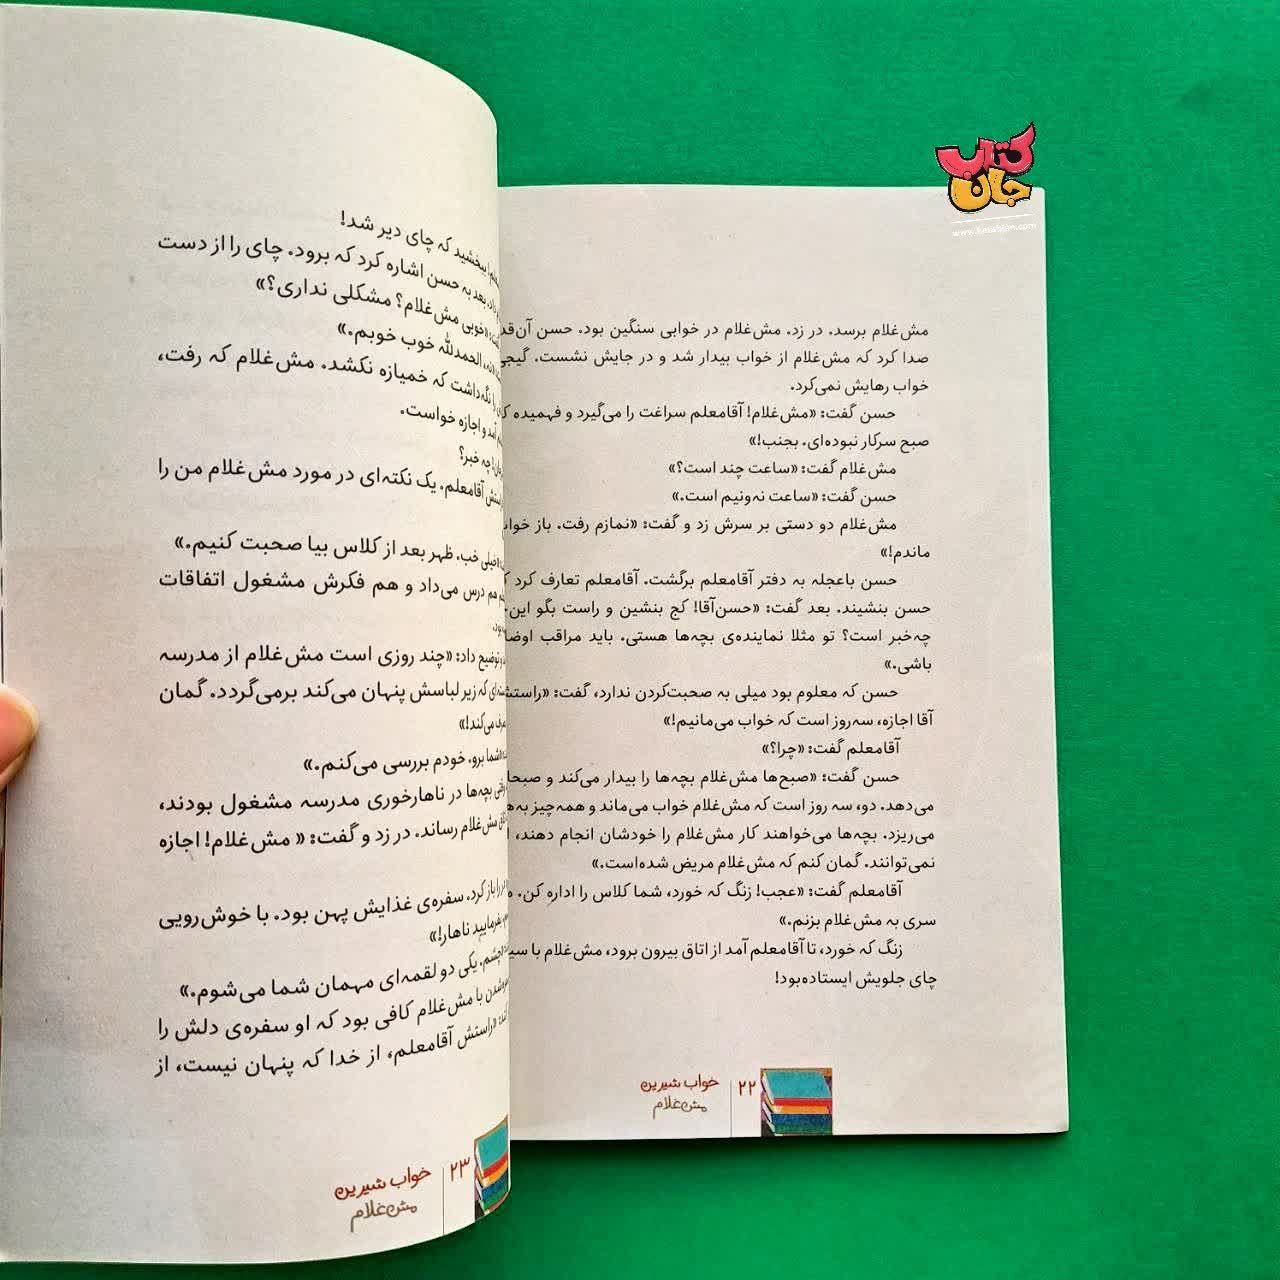 کتاب
جان
www.ketabjan.com
مش‌غلام برسد. در زد. مش‌غلام در خوابی سنگین بود. حسن آن‌قد
صدا کرد که مش‌غلام از خواب بیدار شد و در جایش نشست. گیجی
خواب رهایش نمی‌کرد.
حسن گفت: «مش‌غلام! آقامعلم سراغت را می‌گیرد و فهمیده ک
صبح سرکار نبوده‌ای. بجنب!»
مش‌غلام گفت: «ساعت چند است؟»
حسن گفت: «ساعت نه‌ونیم است.»
مش‌غلام دو دستی بر سرش زد و گفت: «نمازم رفت. باز خواب
ماندم!»
حسن باعجله به دفتر آقامعلم برگشت. آقامعلم تعارف کرد ک
حسن بنشیند. بعد گفت: «حسن‌آقا! کج بنشین و راست بگو این‌
چه‌خبر است؟ تو مثلا نماینده‌ی بچه‌ها هستی. باید مراقب اوضا
باشی.»
حسن که معلوم بود میلی به صحبت‌کردن ندارد، گفت: «راستش
آقا اجازه، سه‌روز است که خواب می‌مانیم!»
آقامعلم گفت: «چرا؟»
حسن گفت: «صبح‌ها مش‌غلام بچه‌ها را بیدار می‌کند و صبحا
می‌دهد. دو، سه روز است که مش‌غلام خواب می‌ماند و همه‌چیز به‌ه
می‌ریزد. بچه‌ها می‌خواهند کار مش‌غلام را خودشان انجام دهند،
نمی‌توانند. گمان کنم که مش‌غلام مریض شده‌است.»
آقامعلم گفت: «عجب! زنگ که خورد، شما کلاس را اداره کن.
سری به مش‌غلام بزنم.»
زنگ که خورد، تا آقامعلم آمد از اتاق بیرون برود، مش‌غلام با سی
چای جلویش ایستاده‌بود!
۲۲
خواب شیرین
مش‌غلام
ببخشید که چای دیر شد!
بعد به حسن اشاره کرد که برود. چای را از دست
«خوبی مش‌غلام؟ مشکلی نداری؟»
الحمدلله خوب خوبم.»
را نگه‌داشت که خمیازه نکشد. مش‌غلام که رفت،
آمد و اجازه خواست.
چه خبر؟
راستش آقامعلم. یک نکته‌ای در مورد مش‌غلام من را
«خیلی خب. ظهر بعد از کلاس بیا صحبت کنیم.»
هم درس می‌داد و هم فکرش مشغول اتفاقات
بود.
توضیح داد: «چند روزی است مش‌غلام از مدرسه
که زیر لباسش پنهان می‌کند برمی‌گردد. گمان
می‌کند!»
«شما برو. خودم بررسی می‌کنم.»
وقتی بچه‌ها در ناهارخوری مدرسه مشغول بودند،
مش‌غلام رساند. در زد و گفت: « مش‌غلام! اجازه
را باز کرد. سفره‌ی غذایش پهن بود. با خوش‌رویی
بفرمایید ناهار!»
چشم. یکی دو لقمه‌ای مهمان شما می‌شوم.»
شدن با مش‌غلام کافی بود که او سفره‌ی دلش را
«راستش آقامعلم، از خدا که پنهان نیست، از
۲۳
خواب شیرین
مش‌غلام